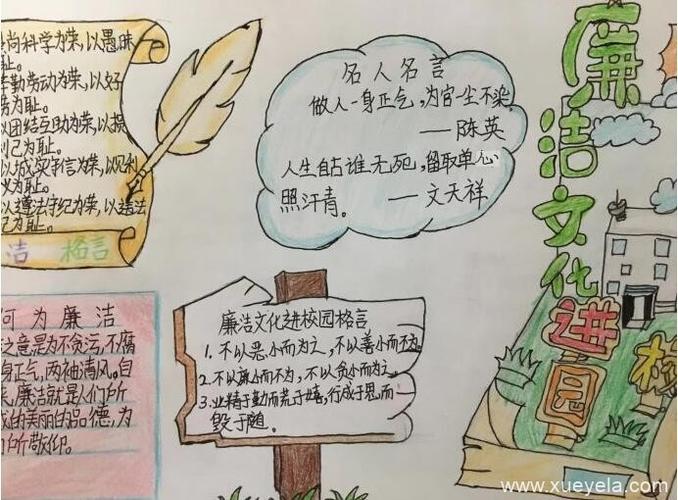 尚科学为荣,以愚昧
耻。
勤劳动为荣,以好
劳为耻。
以团结互助为荣,以损
利己为耻。
以诚实守信为荣,以见利
义为耻。
以遵法守纪为荣,以违法
己为耻。
洁 格言
名人名言
做人一身正气,为官一尘不染
——陈英
人生自古谁无死,留取单心
照汗青。 ——文天祥
廉洁文化
进校园
何为廉洁
之意是为不贪污,不腐
身正气,两袖清风。自
,廉洁就是人们所
的美丽的品德,为
所敬仰。
廉洁文化进校园格言
1.不以恶小而为之,不以善小而不为。
2.不以廉小而不为,不以贪小而为之。
3.业精于勤而荒于嬉,行成于思而
毁于随。
www.xueyela.com